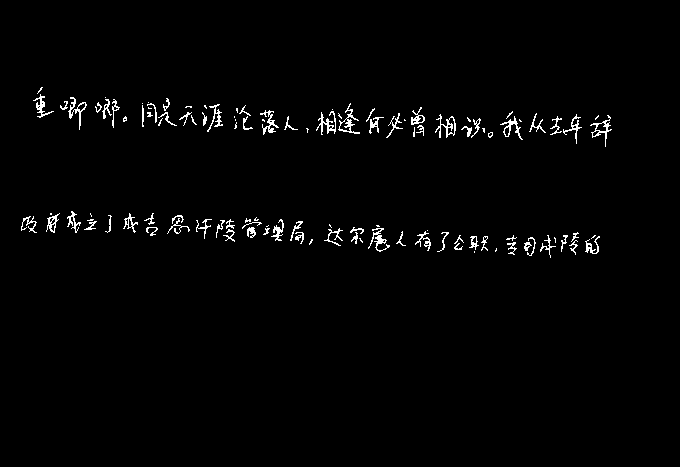 重唧唧。同是天涯沦落人,相逢何必曾相识。我从去年辞
政府成立了成吉思汗陵管理局,达尔扈人有了公职,专司成陵的